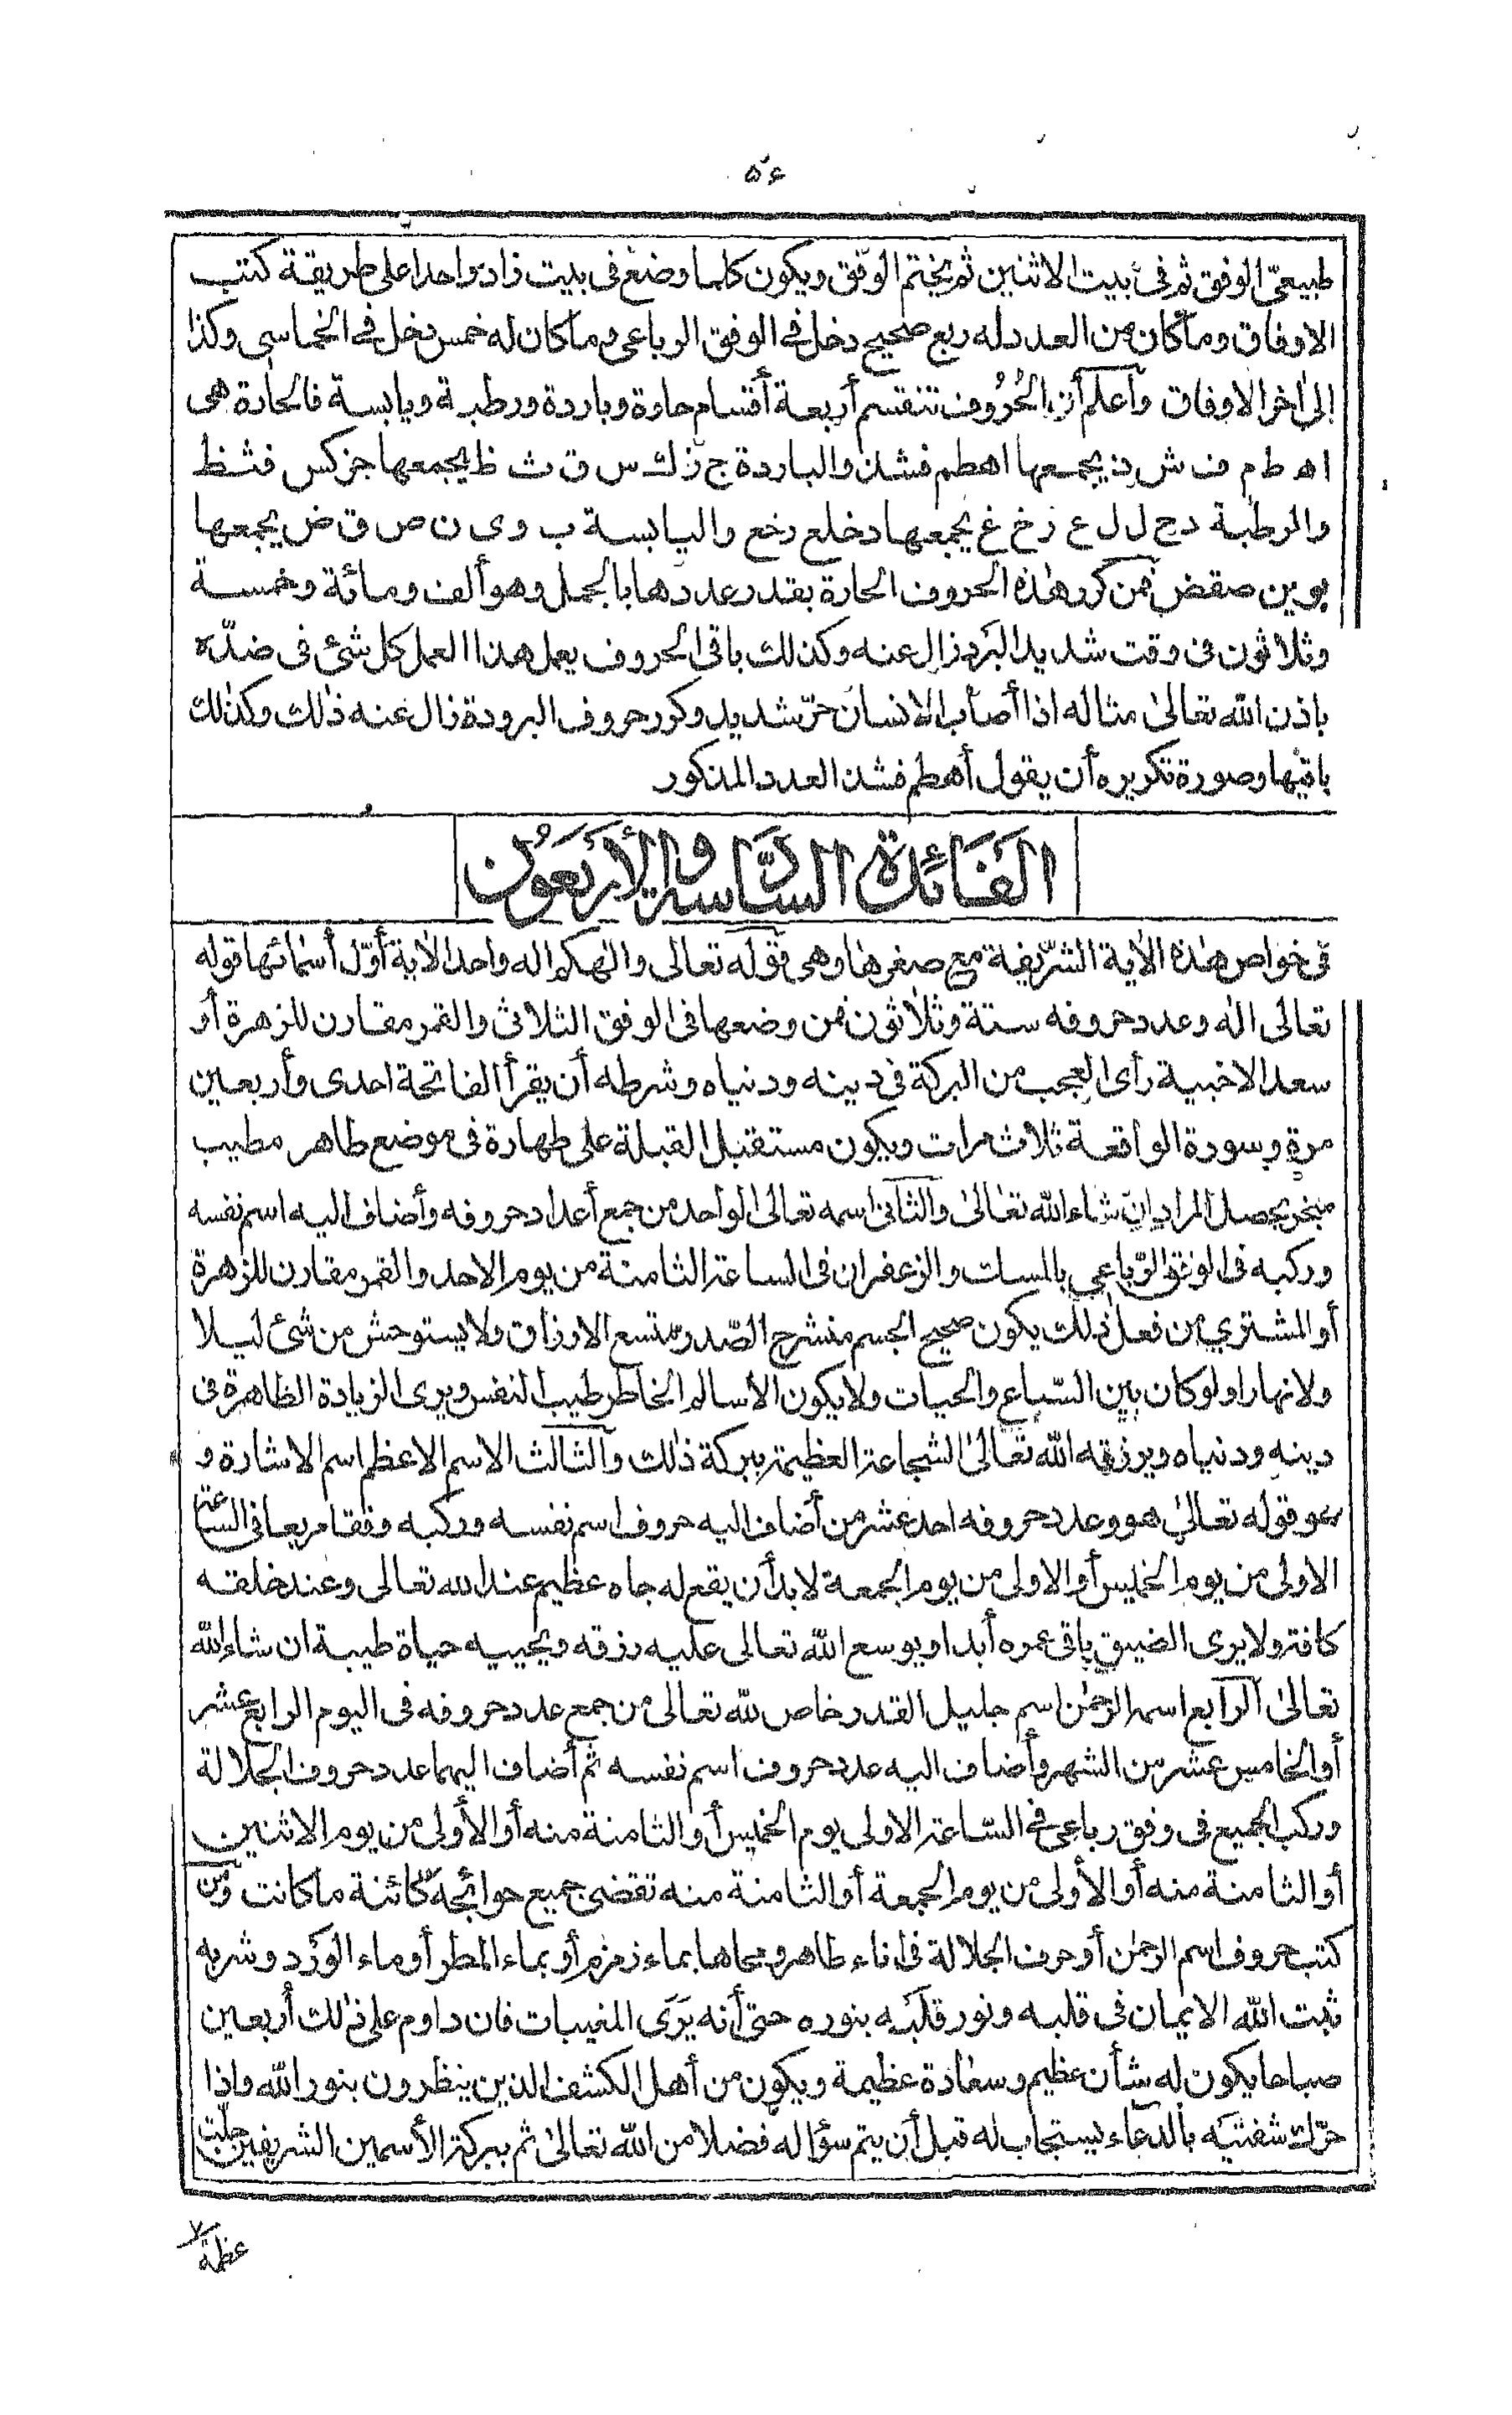 ٥٦
طبيعيّ الوفق ثم في بيت الاثنين ثم يختم الوفق ويكون كلما وضع في بيت زاد واحدا على طريقة كتب
الاوفاق وما كان من العدد له ربع صحيح دخل في الوفق الرباعي وما كان له خمس دخل في الخماسي وكذا
إلى اٰخر الاوفاق وأعلم أن الحُرُوف تنقسم أربعة أقسام حارة وباردة ورطبة ويابسة فالحارة هى
ا ه ط م ف ش ذ يجمعها اهطم فشذ والباردة ج ز ك س ق ث ظ يجمعها جزكس قثظ
والرطبة د ح ل ل ع ر خ غ يجمعها دخلع رخع واليابسة ب و ى ن ص ق ض يجمعها
بوين صقض فمن كرر هٰذه الحروف الحارة بقدر عددها بالجمل وهو ألف ومائة وخمسة
وثلاثون في وقت شديد البرد زال عنه وكذلك باقي الحروف يعمل هذا العمل كل شئ فى ضدّه
باذن الله تعالىٰ مثاله اذا أصاب الانسان حرّ شديد وكرر حروف البرودة زال عنه ذٰلك وكذٰلك
باقيها وصورة تكريره أن يقول أهطم فشذ العدد المذكور
الفَائدة السَّادسة والأربَعُون
في خواص هٰذه الاٰية الشريفة مع صغرها وهى قوله تعالى والٰهكم اله واحد الاٰية أوّل أسمٰائها قوله
تعالى الٰه وعدد حروفه ستة وثلاثون فمن وضعها فى الوفق الثلاثى والقمر مقارن للزهرة أو
سعد الاخبية رأى العجب من البركة فى دينه ودنياه وشرطه أن يقرأ الفاتحة احدى وأربعين
مرة وسورة الواقعة ثلاث مرات ويكون مستقبل القبلة على طهارة فى موضع طاهر مطيب
مبخر يحصل المراد ان شاء الله تعالىٰ والثاني اسمه تعالىٰ الواحد من جمع أعداد حروفه وأضاف اليه اسم نفسه
وركبه فى الوفق الرّباعي بالمسك والزعفران فى الساعة الثامنة من يوم الاحد والقمر مقارن للزهرة
أو المشتري من فعل ذلك يكون صحيح الجسم منشرح الصّدر متسع الارزاق ولا يستوحش من شئ ليلا
ولا نهارا ولو كان بين السّباع والحيات ولا يكون الأسالم الخاطر طيب النفس ويرى الزيادة الظاهرة فى
دينه ودنياه ويرزقه الله تعالىٰ الشجاعة العظيمة ببركة ذٰلك والثالث الاسم الاعظم اسم الاشارة و
هو قوله تعالىٰ هو وعدد حروفه احد عشر من أضاف اليه حروف اسم نفسه وركبه وفقا مربعا فى الساعة
الاولى من يوم الخميس أو الاولى من يوم الجمعة لا بد أن يقع له جاه عظيم عند الله تعالى وعند خلقه
كافة ولا يرى الضيق باقى عمره أبدا ويوسع الله تعالى عليه رزقه ويحييه حياة طيبة ان شاء الله
تعالىٰ الرابع اسمه الرحمٰن اسم جليل القدر خاص لله تعالىٰ من جمع عدد حروفه فى اليوم الرابع عشر
أو الخامس عشر من الشهر وأضاف اليه عدد حروف اسم نفسه ثم أضاف اليهما عدد حروف الجلالة
وركب الجميع فى وفق رباعى فى السّاعة الاولى يوم الخميس أو الثامنة منه أو الأولى من يوم الاثنين
أو الثامنة منه أو الأولى من يوم الجمعة أو الثامنة منه تقضى جميع حوائجه كائنة ما كانت ومن
كتب حروف اسم الرحمٰن أو حرف الجلالة فى اناء طاهر ومحاها بماء زمزم أو بماء المطر أو ماء الورد وشربه
ثبت الله الايمان فى قلبه ونور قلبَه بنوره حتى أنه يَرَى المغيبات فان داوم على ذٰلك أربعين
صباحا يكون له شأن عظيم وسعٰادة عظيمة ويكون من أهل الكشف الذين ينظرون بنور الله واذا
حرّك شفتيه بالدعاء يستجاب له قبل أن يتم سؤاله فضلا من الله تعالىٰ ثم ببركة الأسمين الشريفين جلّت
عظمة